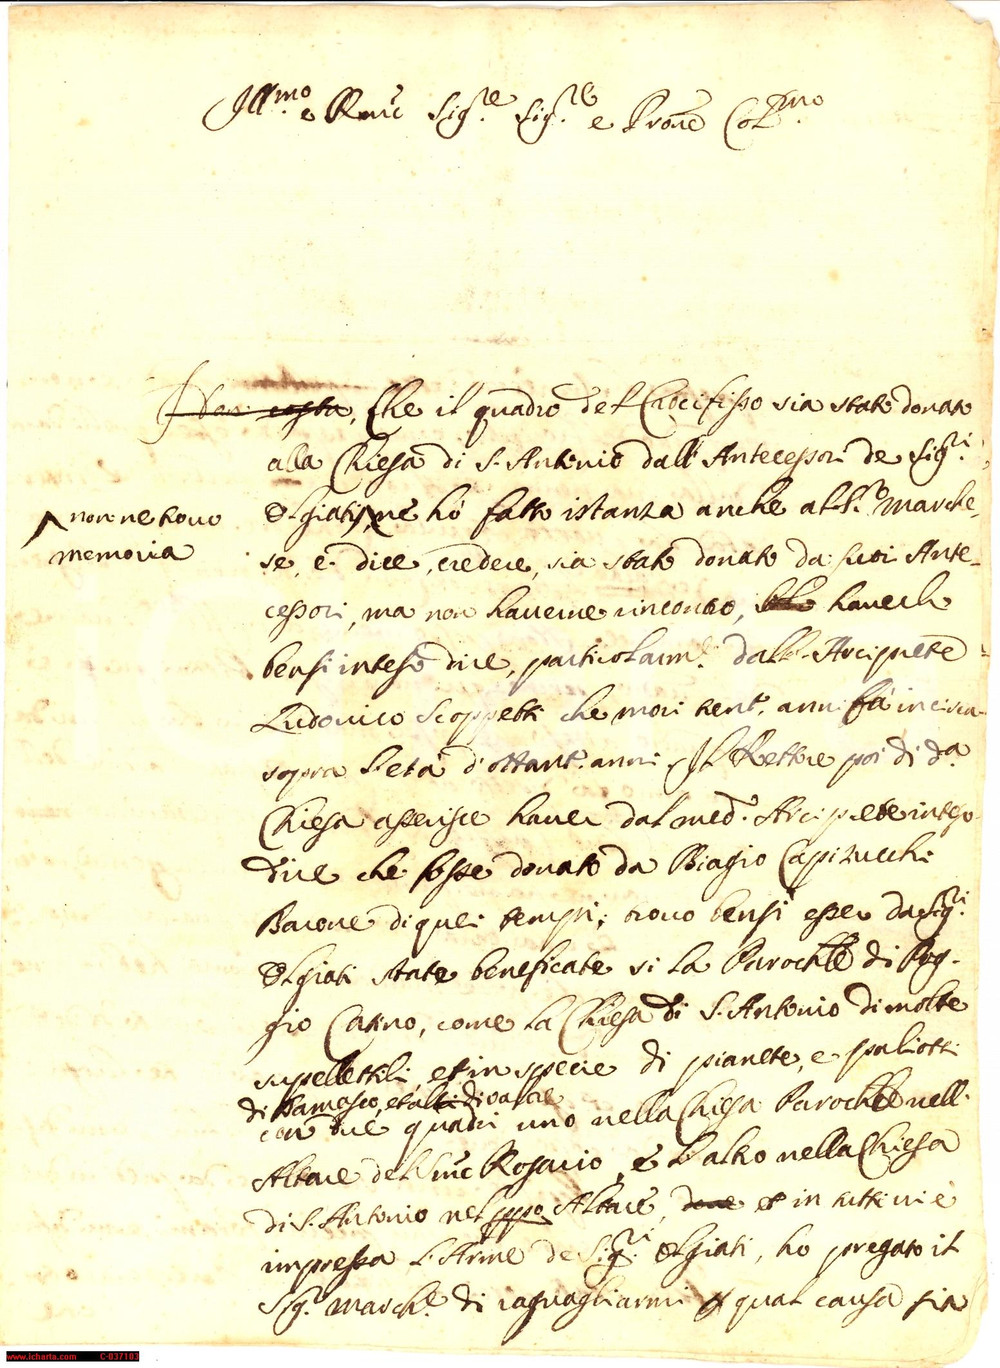 Ill.mo e R.mo Sig.re Sig.re e Prone Col.mo
Che il quadro del Crocifisso sia stato donato
alla Chiesa di S. Antonio dall' Antecessori de Sig.ri
non ne trovo
memoria
Olgiati, ne hò fatto istanza anche al S.r Marche-
se, e dice, credere, sia stato donato da suoi Ante-
cessori, ma non haverne rincontro, haverlo
bensi inteso dire, particolarm.e dall'Arciprete
Ludovico Scoppetti che mori vent'anni fà incirca
sopra l'età d'ottant'anni. Il Rettore poi di d.a
Chiesa asserisce haver dal med.o Arciprete inteso
dire che fosse donato da Biagio Capizucchi
Barone di quei tempi; trovo bensi esser da Sig.ri
Olgiati state beneficate si la Parochle di Pog-
gio Catino, come la Chiesa di S. Antonio di molte
supellettili, et in specie di pianete, e paliotti
di Damasco, et di
con due quadri uno nella Chiesa Parochle nell'
Altare del SSmo Rosario, e l'altro nella Chiesa
di S. Antonio nel ppo Altare, et in tutti vi è
impressa l'Arme de Sig.ri Olgiati, ho pregato il
Sig.r March.e di raguagliarmi p qual causa sia
www.icharta.com C-037103